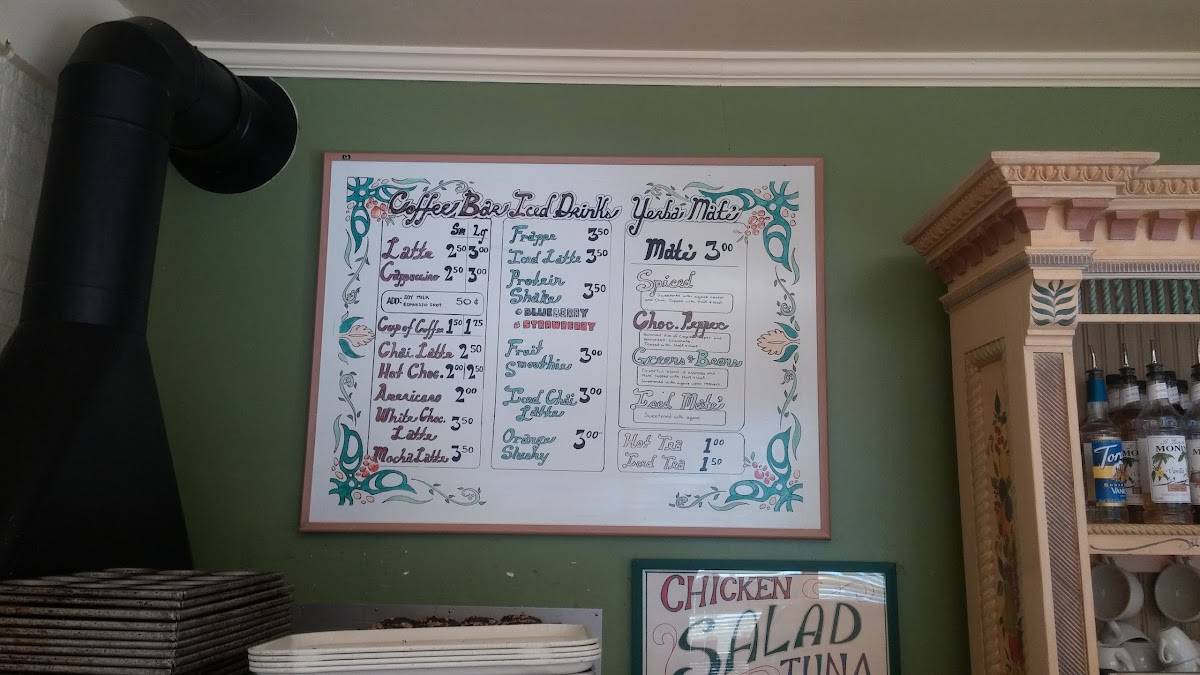 Coffee Bar
Sm Lg
Latte 2 50 3 00
Cappuccino 2 50 3 00
ADD: SOY MILK
ESPRESSO SHOT 50¢
Cup of Coffee 1 50 1 75
Chai Latte 2 50
Hot Choc. 2 00 2 50
Americano 2 00
White Choc.
Latte 3 50
Mocha Latte 3 50
Iced Drinks
Frappe 3 50
Iced Latte 3 50
Protein
Shake 3 50
BLUEBERRY
STRAWBERRY
Fruit
Smoothie 3 00
Iced Chai 3 00
Latte
Orange
Slushy 3 00
Yerba Maté
Maté 3 00
Spiced
Choc. Pepper
Greens & Beans
Iced Maté
Sweetened with agave
Hot Tea 1 00
Iced Tea 1 50
CHICKEN
SALAD
TUNA
Tor
MON
Vanilla